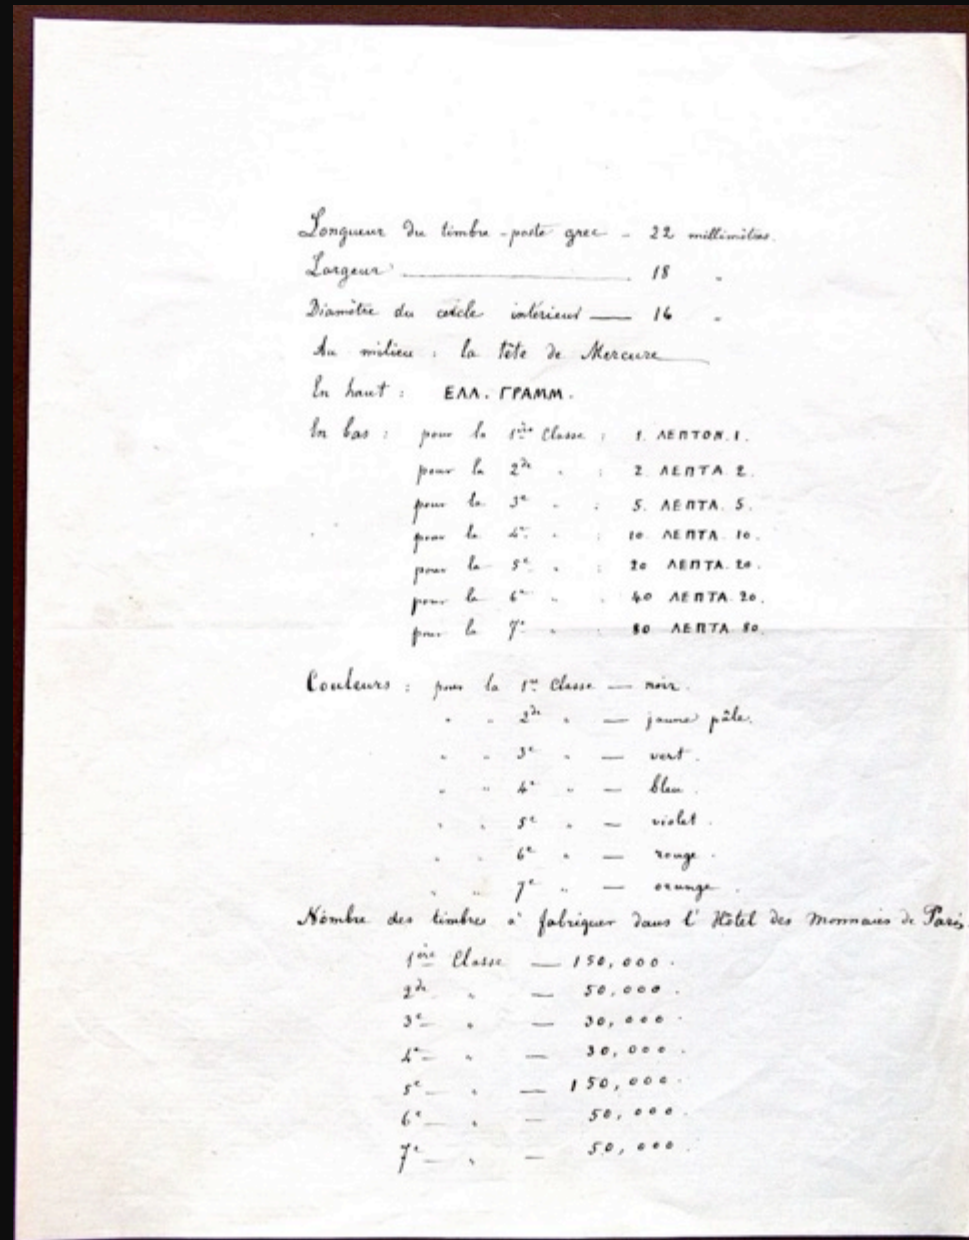 Longueur du timbre-poste grec - 22 millimètres.
Largeur — 18 "
Diamètre du cercle intérieur — 16 "
Au milieu : la tête de Mercure
En haut : ΕΛΛ. ΓΡΑΜΜ.
En bas : pour la 1ère Classe : 1. ΛΕΠΤΟΝ. 1.
pour la 2de " : 2. ΛΕΠΤΑ 2.
pour la 3e " : 5. ΛΕΠΤΑ. 5.
pour la 4e " : 10. ΛΕΠΤΑ. 10.
pour la 5e " : 20 ΛΕΠΤΑ. 20.
pour la 6e " : 40 ΛΕΠΤΑ. 20.
pour la 7e " : 80 ΛΕΠΤΑ 80.
Couleurs : pour la 1re Classe — noir.
" " 2de " — jaune pâle.
" " 3e " — vert.
" " 4e " — bleu.
" " 5e " — violet.
" " 6e " — rouge.
" " 7e " — orange.
Nombre des timbres à fabriquer dans l'Hôtel des Monnaies de Paris.
1ère Classe — 150,000.
2de " — 50,000.
3e " — 30,000.
4e " — 30,000.
5e " — 150,000.
6e " — 50,000.
7e " — 50,000.